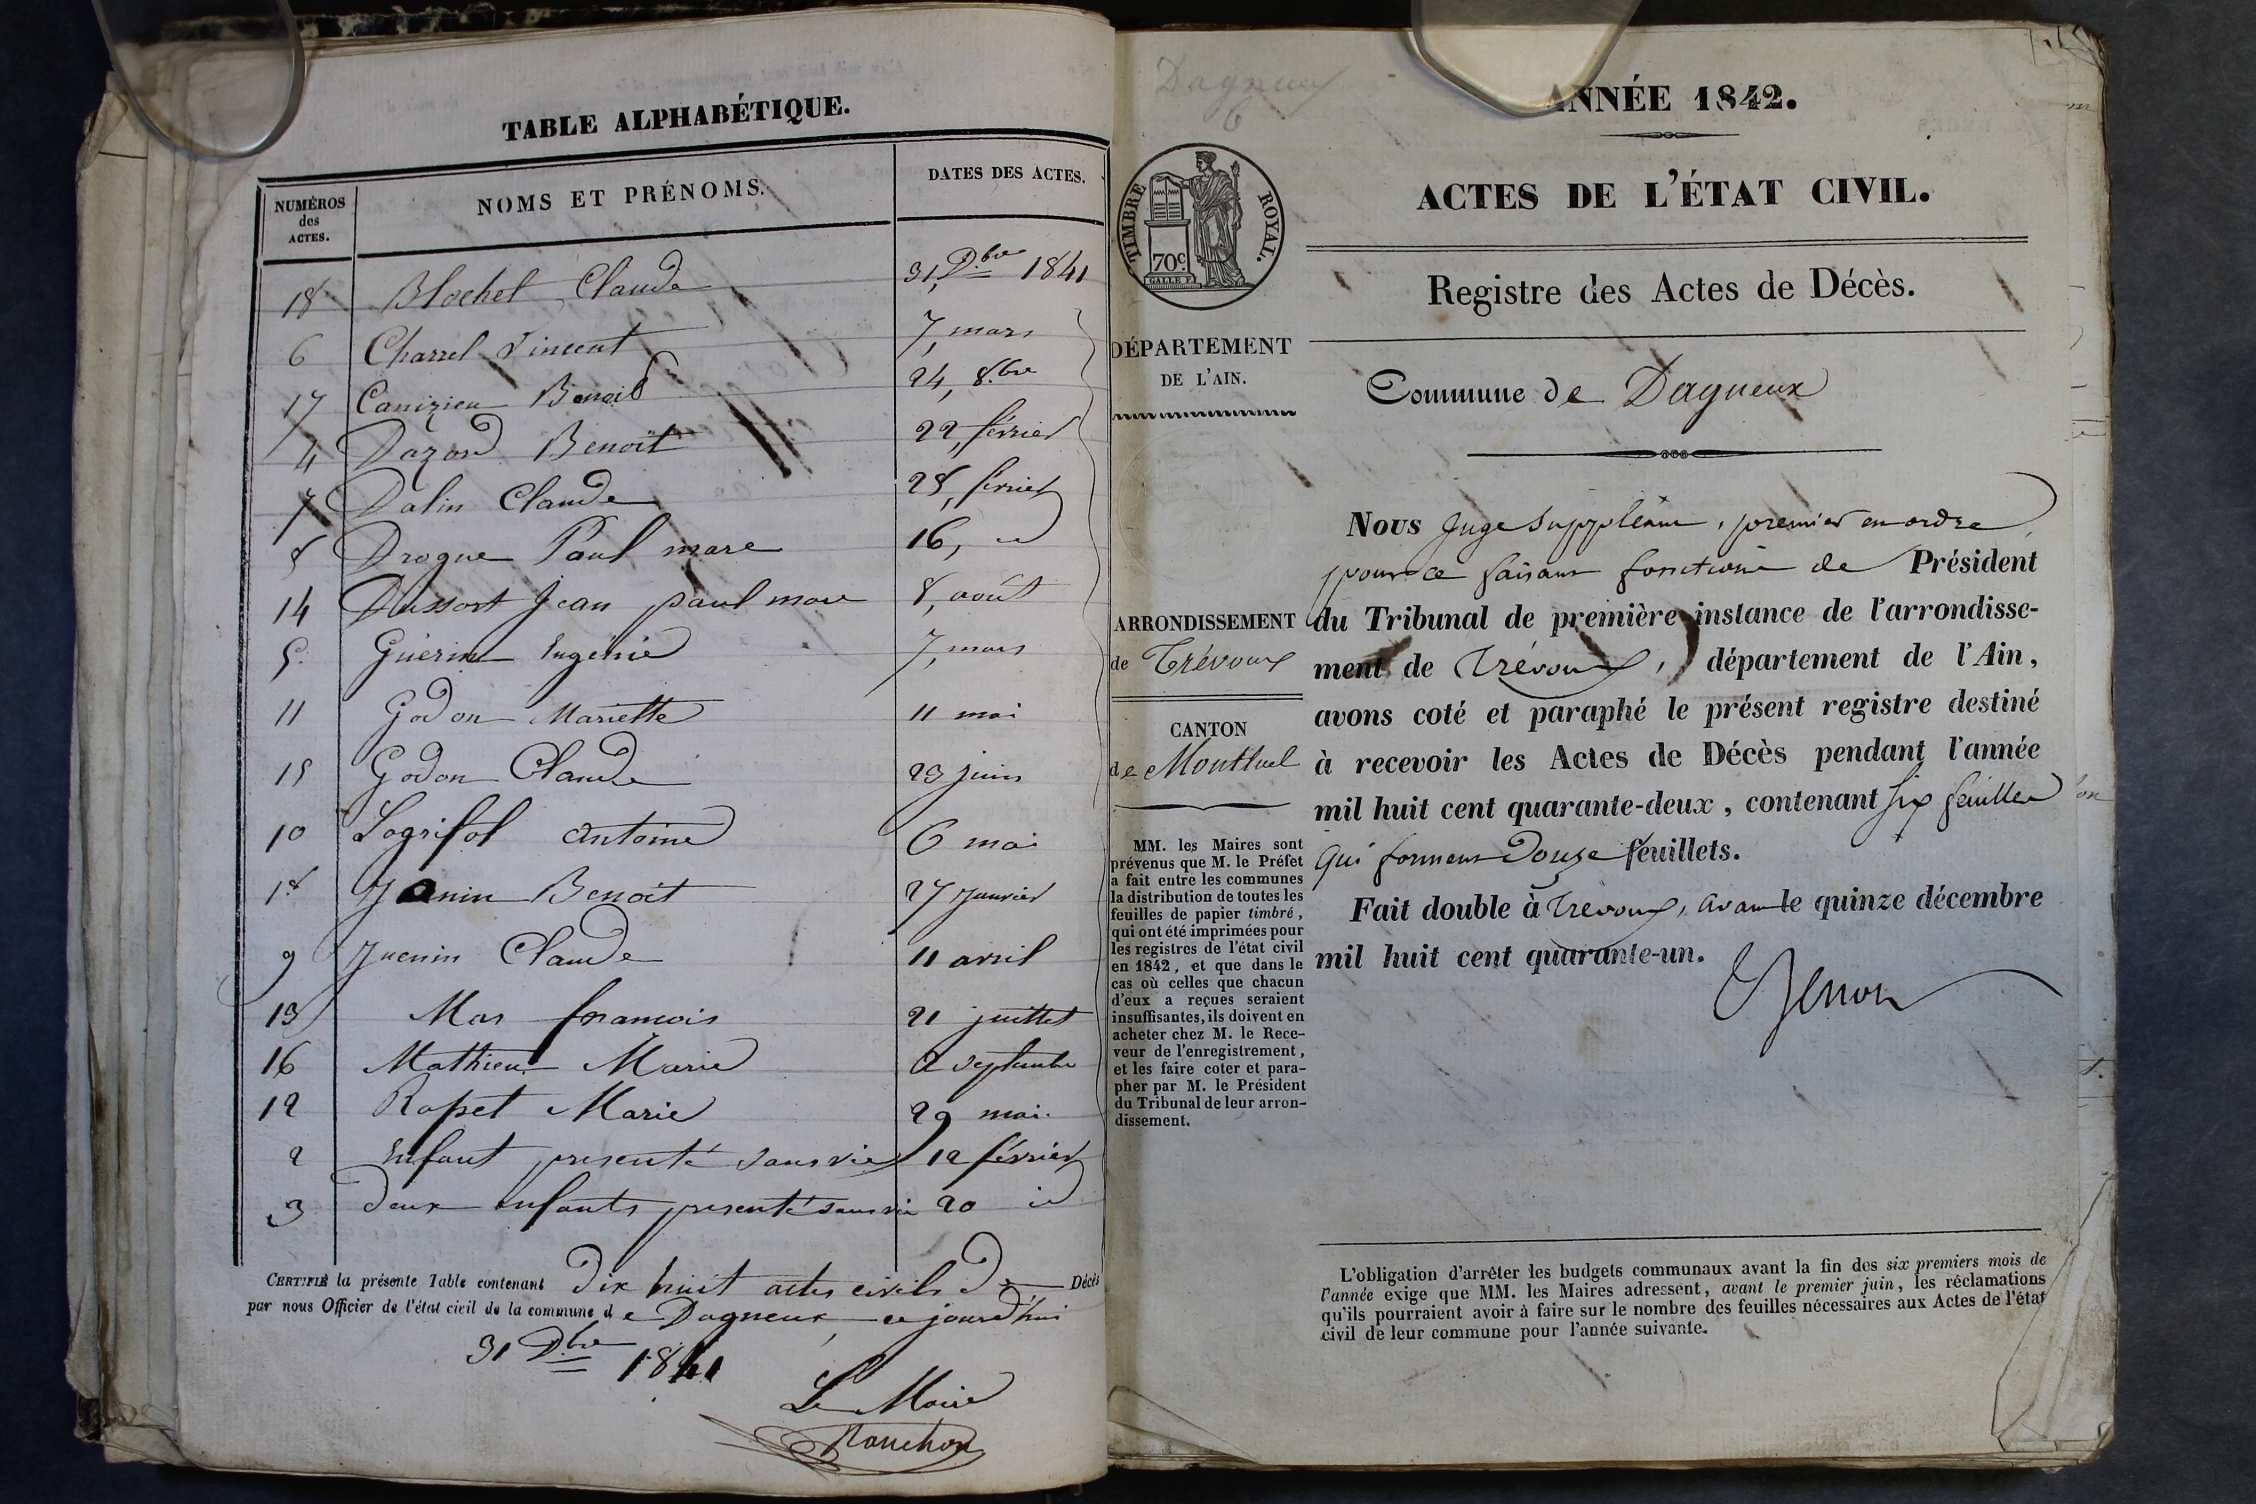 TABLE ALPHABÉTIQUE.
NUMÉROS des ACTES. NOMS ET PRÉNOMS. DATES DES ACTES.
18 Blochet Claude 31, Dbre 1841
6 Charrel Vincent 7, mars
17 Canizieu Benoit 24, 8.bre
4 Dazord Benoît 22, février
7 Dalin Claude 28, février
8 Drogue Paul marc 16, id
14 Dussort Jean paul marc 8, août
5. Guérin Eugénie 7, mars
11 Godon Mariette 11 mai
15 Godon Claude 23 juin
10 Logrifol antoine 6 mai
1er Janin Benoit 27 Janvier
9 Juenin Claude 11 avril
13 Mas francois 21 juillet
16 Mathieu Marie 2 septembre
12 Rapet Marie 29 mai.
2 Enfant presenté sans vie 12 février
3 deux enfants presenté sans vie 20 id
CERTIFIÉ la présente Table contenant Dix huit actes civils de Décès
par nous Officier de l'état civil de la commune de Dagneux ce jourd'hui
31 Dbre 1841
Le Maire
Dagneux
6
TIMBRE ROYAL.
70c.
DÉPARTEMENT
DE L'AIN.
ARRONDISSEMENT
de Trévoux
CANTON
de Montluel
MM. les Maires sont
prévenus que M. le Préfet
a fait entre les communes
la distribution de toutes les
feuilles de papier timbré,
qui ont été imprimées pour
les registres de l'état civil
en 1842, et que dans le
cas où celles que chacun
d'eux a reçues seraient
insuffisantes, ils doivent en
acheter chez M. le Rece-
veur de l'enregistrement,
et les faire coter et para-
pher par M. le Président
du Tribunal de leur arron-
dissement.
ANNÉE 1842.
ACTES DE L'ÉTAT CIVIL.
Registre des Actes de Décès.
Commune de Dagneux
Nous Juge Suppléant, premier en ordre
pour ce faisant fonctions de Président
du Tribunal de première instance de l'arrondisse-
ment de Trévoux, département de l'Ain,
avons coté et paraphé le présent registre destiné
à recevoir les Actes de Décès pendant l'année
mil huit cent quarante-deux, contenant six feuilles
qui forment Douze feuillets.
Fait double à Trévoux, avant le quinze décembre
mil huit cent quarante-un.
L'obligation d'arrêter les budgets communaux avant la fin des six premiers mois de
l'année exige que MM. les Maires adressent, avant le premier juin, les réclamations
qu'ils pourraient avoir à faire sur le nombre des feuilles nécessaires aux Actes de l'état
civil de leur commune pour l'année suivante.